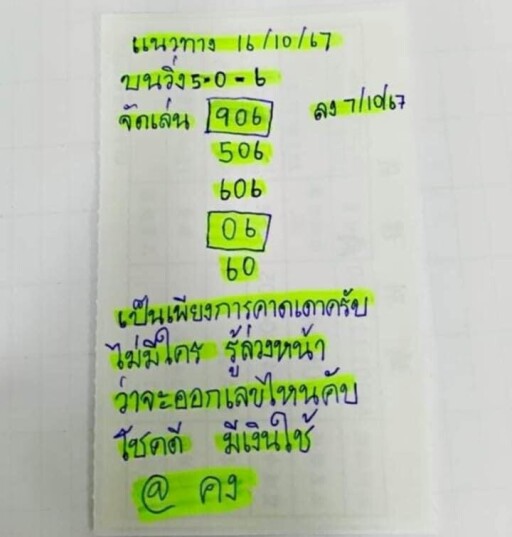 แนวทาง 16/10/67
บนวิ่ง 5-0-6
จัดเล่น 906 ลง 7/10/67
506
606
06
60
เป็นเพียงการคาดเดาครับ
ไม่มีใคร รู้ล่วงหน้า
ว่าจะออกเลขไหนคับ
โชคดี มีเงินใช้
@ คง